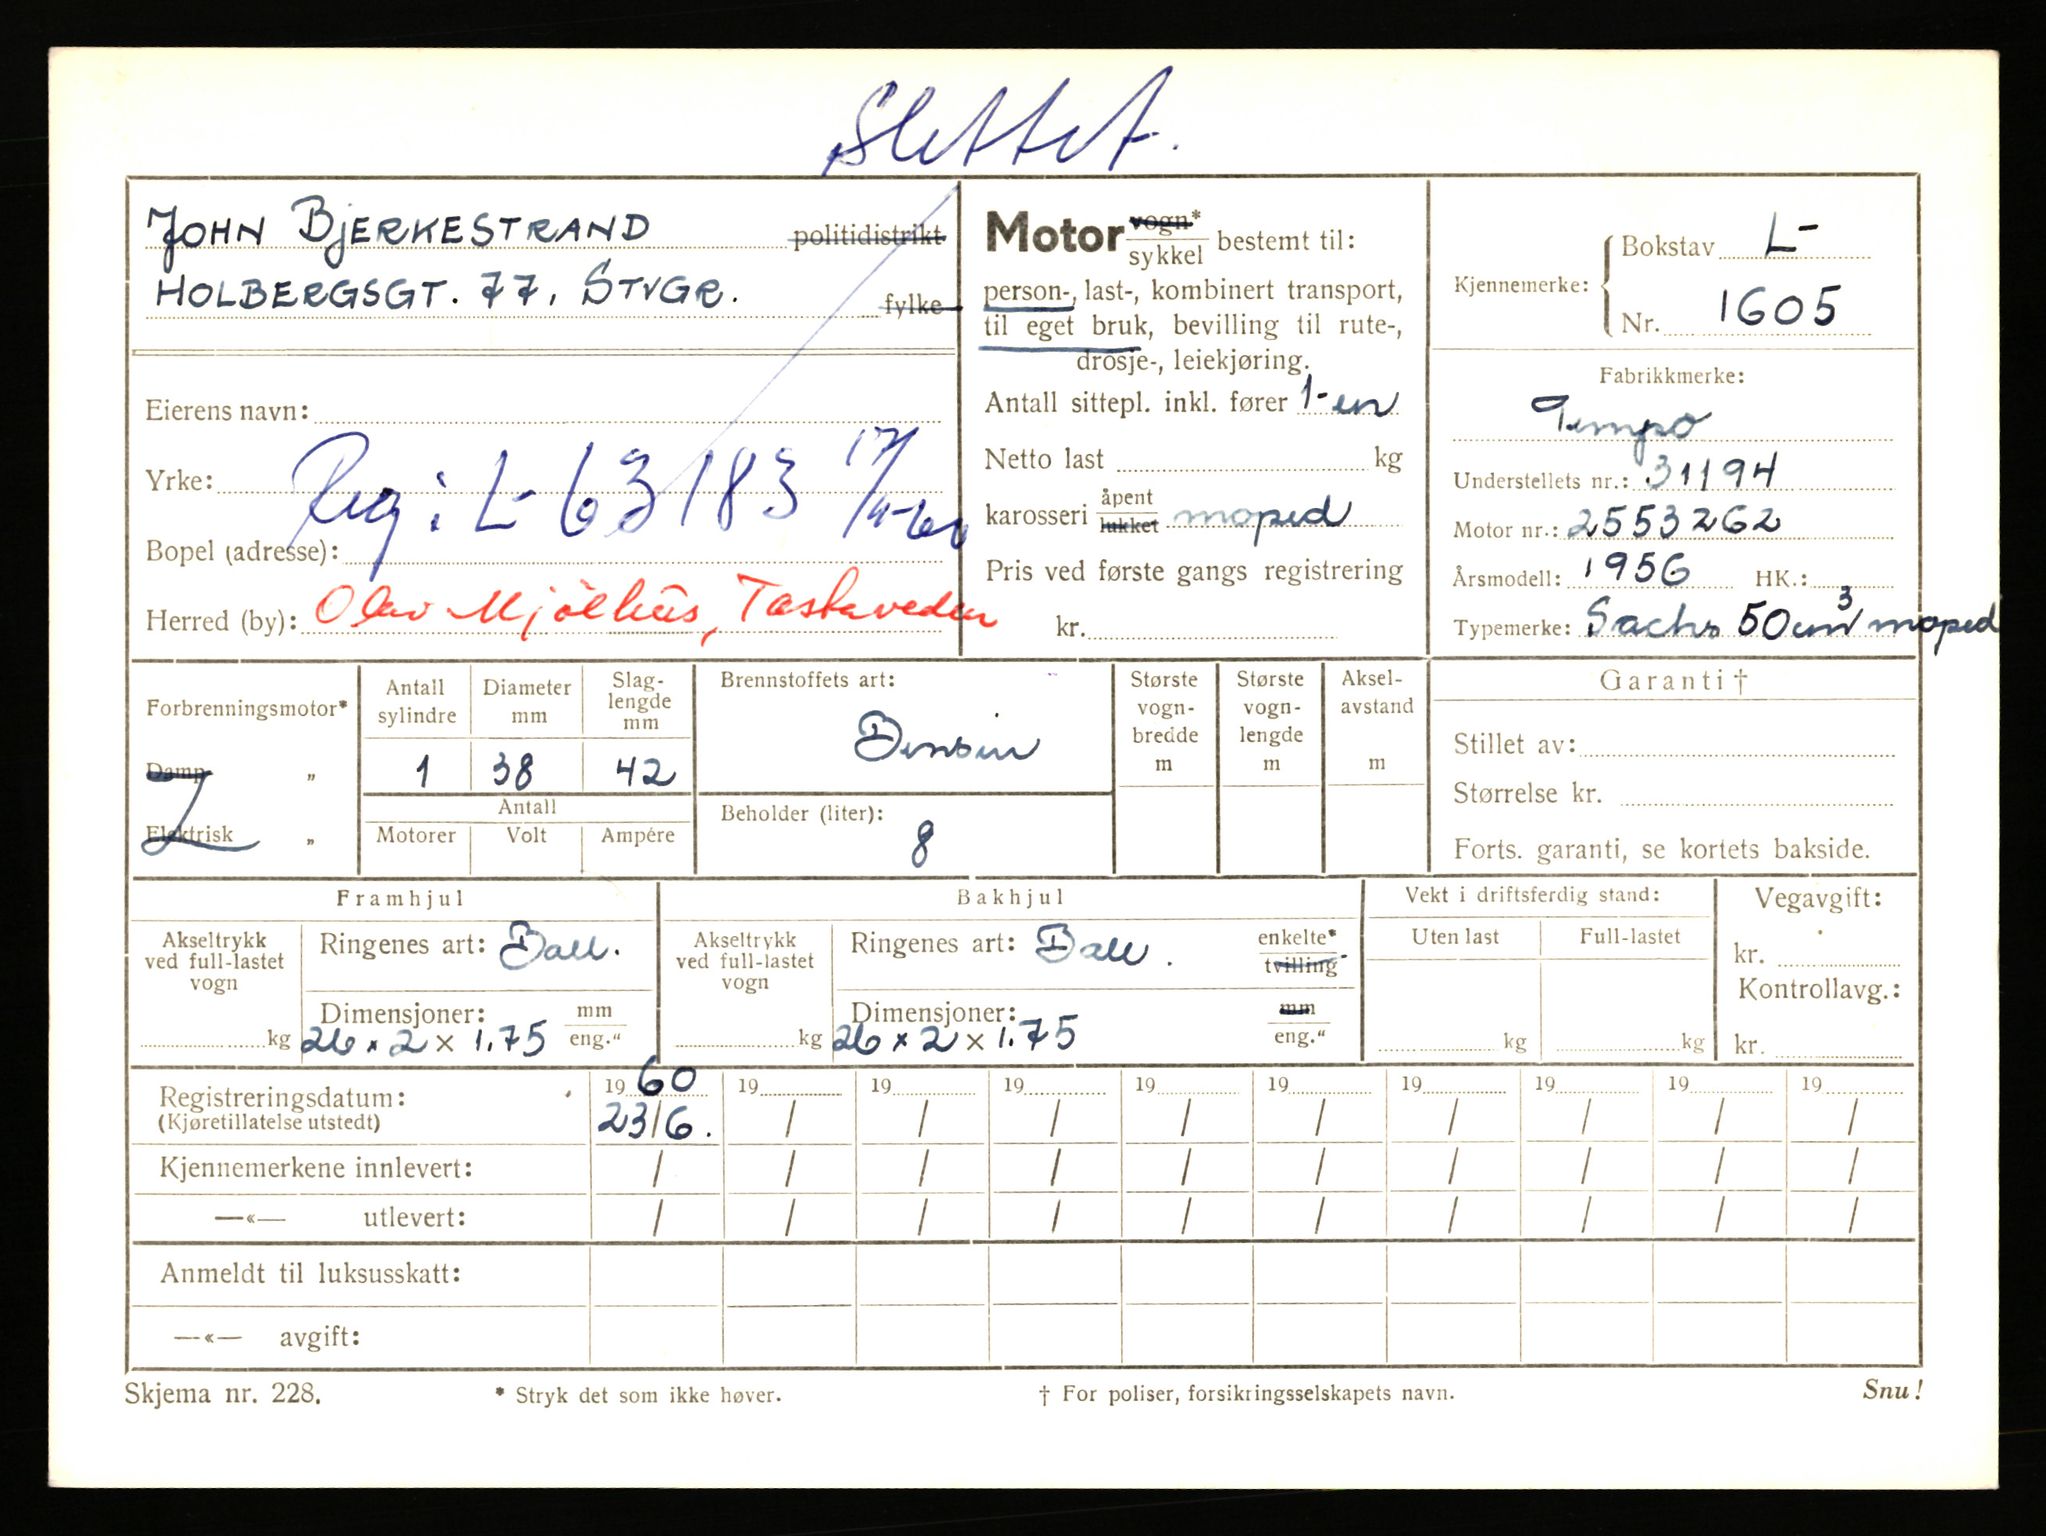 Slettet.
JOHN BJERKESTRAND politidistrikt
HOLBERGSGT. 77, STVGR. fylke
Eierens navn:
Yrke:
Reg i L-63183 17/4-
Bopel (adresse):
Herred (by): Olav Mjölhus, Tastaveden
Motor vogn* sykkel bestemt til:
person-, last-, kombinert transport,
til eget bruk, bevilling til rute-,
drosje-, leiekjøring.
Antall sittepl. inkl. fører 1-en
Netto last kg
karosseri åpent lukket moped
Pris ved første gangs registrering
kr.
Kjennemerke: Bokstav L-
Nr. 1605
Fabrikkmerke:
Tempo
Understellets nr.: 31194
Motor nr.: 2553262
Årsmodell: 1956 HK.:
Typemerke: Sachs 50 cm³ moped
Forbrenningsmotor*
Damp „
Elektrisk „
Antall sylindre
Diameter mm
Slag-lengde mm
1 38 42
Antall
Motorer Volt Ampére
Brennstoffets art:
Bensin
Beholder (liter):
8
Største vogn-bredde m
Største vogn-lengde m
Aksel-avstand m
Garanti †
Stillet av:
Størrelse kr.
Forts. garanti, se kortets bakside.
Framhjul
Akseltrykk ved full-lastet vogn
kg
Ringenes art: Ball.
Dimensjoner: mm eng."
26 x 2 x 1.75
Bakhjul
Akseltrykk ved full-lastet vogn
kg
Ringenes art: Ball. enkelte* tvilling
Dimensjoner: mm eng."
26 x 2 x 1.75
Vekt i driftsferdig stand:
Uten last Full-lastet
kg kg
Vegavgift:
kr.
Kontrollavg.:
kr.
Registreringsdatum: 1960 19 19 19 19 19 19 19 19 19
(Kjøretillatelse utstedt) 23/6. / / / / / / / / /
Kjennemerkene innlevert: / / / / / / / / / /
—«— utlevert: / / / / / / / / / /
Anmeldt til luksusskatt:
—«— avgift:
Skjema nr. 228. * Stryk det som ikke høver. † For poliser, forsikringsselskapets navn. Snu!